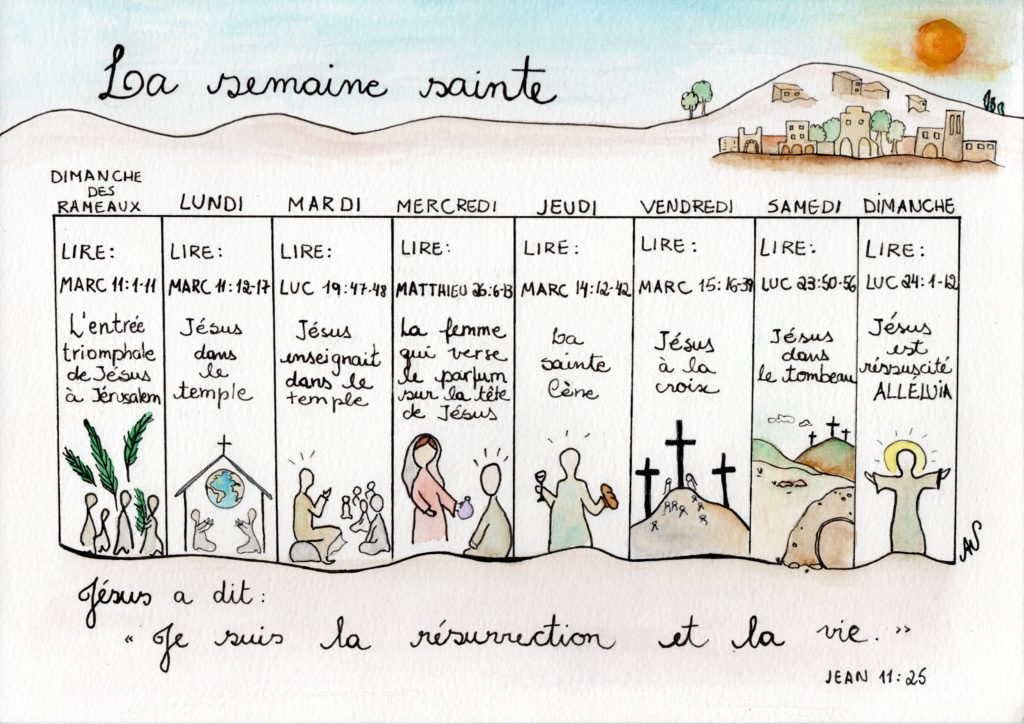 La semaine sainte
DIMANCHE
DES
RAMEAUX
LUNDI
MARDI
MERCREDI
JEUDI
VENDREDI
SAMEDI
DIMANCHE
LIRE:
MARC 11:1-11
L'entrée
triomphale
de Jésus
à Jérusalem
LIRE:
MARC 11:12-17
Jésus
dans
le
temple
LIRE:
LUC 19:47-48
Jésus
enseignait
dans le
temple
LIRE:
MATTHIEU 26:6-13
La femme
qui verse
le parfum
sur la tête
de Jésus
LIRE:
MARC 14:12-42
La
sainte
Cène
LIRE:
MARC 15:16-39
Jésus
à la
croix
LIRE:
LUC 23:50-56
Jésus
dans
le tombeau
LIRE:
LUC 24:1-12
Jésus
est
réssuscité
ALLÉLUIA
Jésus a dit:
" Je suis la résurrection et la vie. "
JEAN 11:25